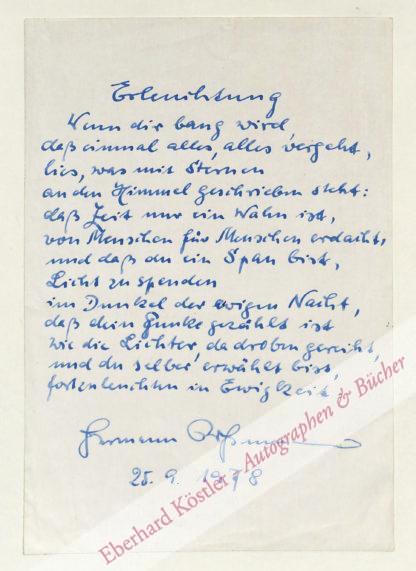 Erleuchtung
Wenn dir bang wird,
daß einmal alles, alles vergeht,
lies, was mit Sternen
an den Himmel geschrieben steht:
daß Zeit nur ein Wahn ist,
von Menschen für Menschen erdacht,
und daß du ein Span bist,
Licht zu spenden
im Dunkel der ewigen Nacht,
daß dein Funke gezählt ist
wie die Lichter, da droben gereiht,
und du selber erwählt bist,
fortzuleuchten in Ewigkeit.
Hermann
25. 9. 1978
Eberhard Köstler Autographen & Bücher